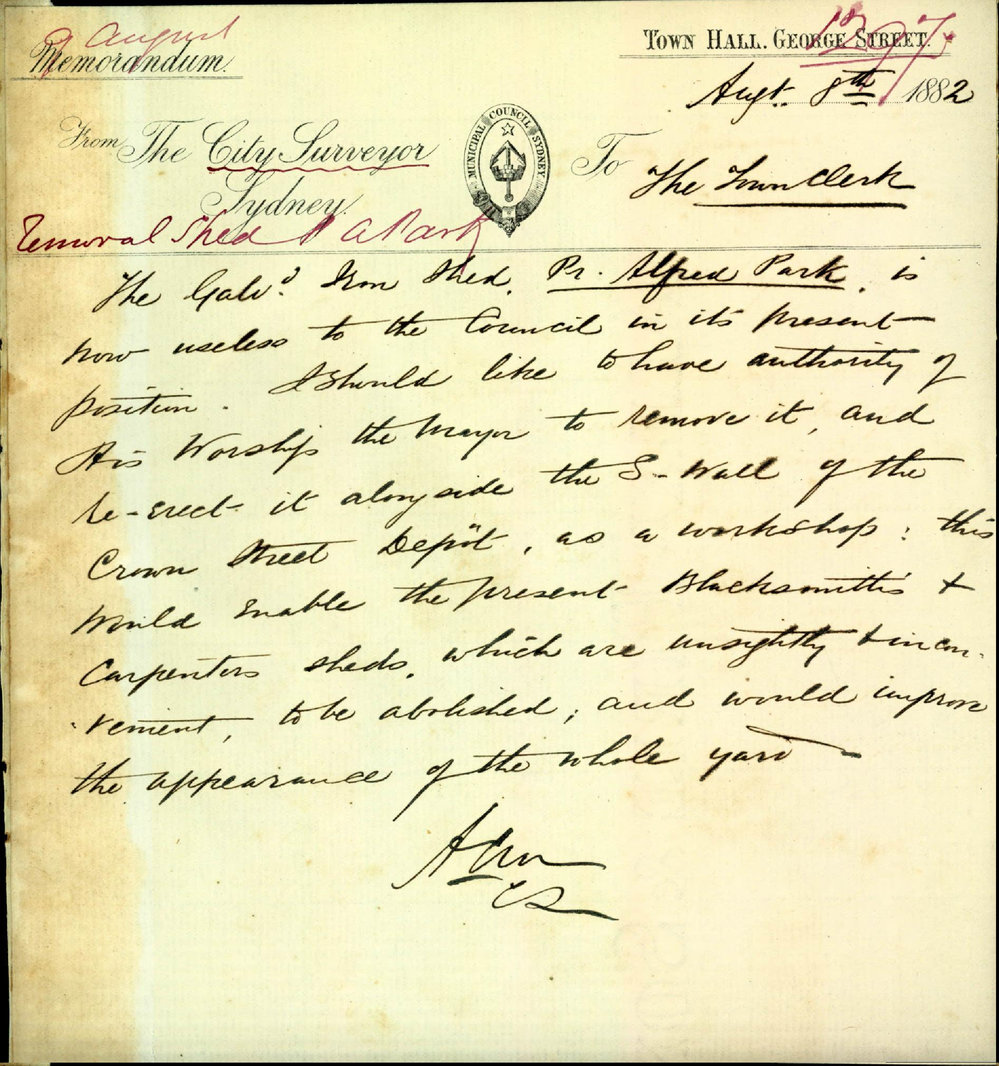 9 August
Memorandum.
TOWN HALL. GEORGE STREET.
Augt. 8th 1882
From The City Surveyor
Sydney.
MUNICIPAL COUNCIL SYDNEY
To The Town Clerk
Removal Shed P A Park
The Galvd. Iron Shed, Pr. Alfred Park, is
now useless to the Council in its present
position. I should like to have authority of
His Worship the Mayor to remove it, and
re-erect it alongside the S- Wall of the
Crown Street Depôt, as a workshop: this
would enable the present Blacksmith's &
Carpenters sheds, which are unsightly & incon-
-venient, to be abolished; and would improve
the appearance of the whole yard
CS